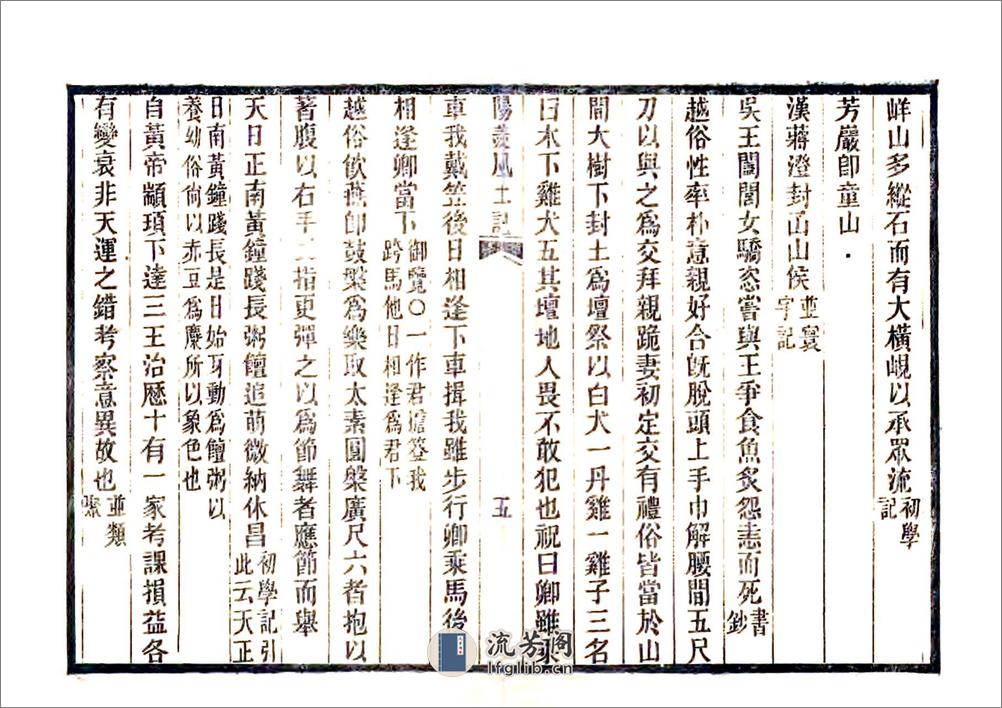 㟍山多縱石而有大橫峴以承眾流初學記
芳嚴卽童山
漢蔣澄封㓰山侯並寰宇記
吳王闔閭女驕恣嘗與王爭食魚炙怨恚而死書鈔
越俗性率朴意親好合旣脫頭上手巾解腰間五尺
刀以與之爲交拜親跪妻初定交有禮俗皆當於山
間大樹下封土爲壇祭以白犬一丹雞一雞子三名
曰木下雞犬五其壇地人畏不敢犯也祝曰卿雖乘
陽羨風土記 五
車我戴笠後日相逢下車揖我雖步行卿乘馬後
相逢卿當下御覽〇一作君擔簦我跨馬他日相逢爲君下
越俗飮燕卽鼓槃爲樂取太素圓槃廣尺六者抱以
著腹以右手五指更彈之以爲節舞者應節而舉
天日正南黃鐘踐長粥饘追萌微納休昌初學記引此云天正
日南黃鐘踐長是日始牙動爲饘粥以養幼俗尙以赤豆爲糜所以象色也
自黃帝顓頊下達三王治曆十有一家考課損益各
有變衰非天運之錯考察意異故也並類聚
流芳阁
lfglib.cn